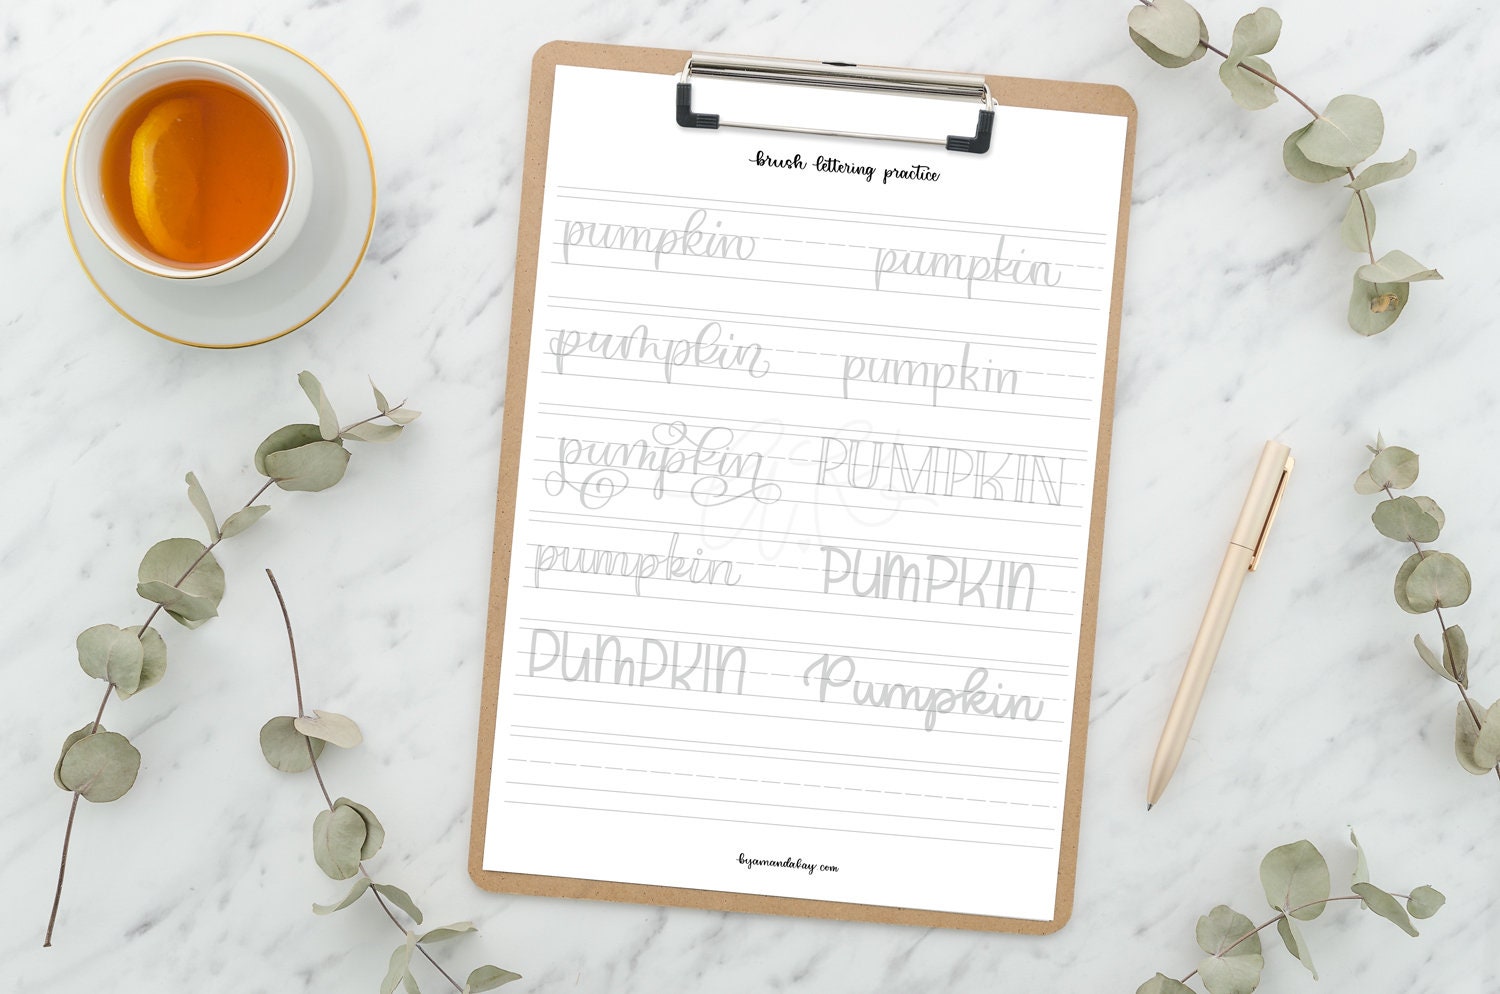 brush lettering practice
pumpkin pumpkin
pumpkin pumpkin
pumpkin PUMPKIN
pumpkin PUMPKIN
PUMPKIN Pumpkin
byamandabay.com